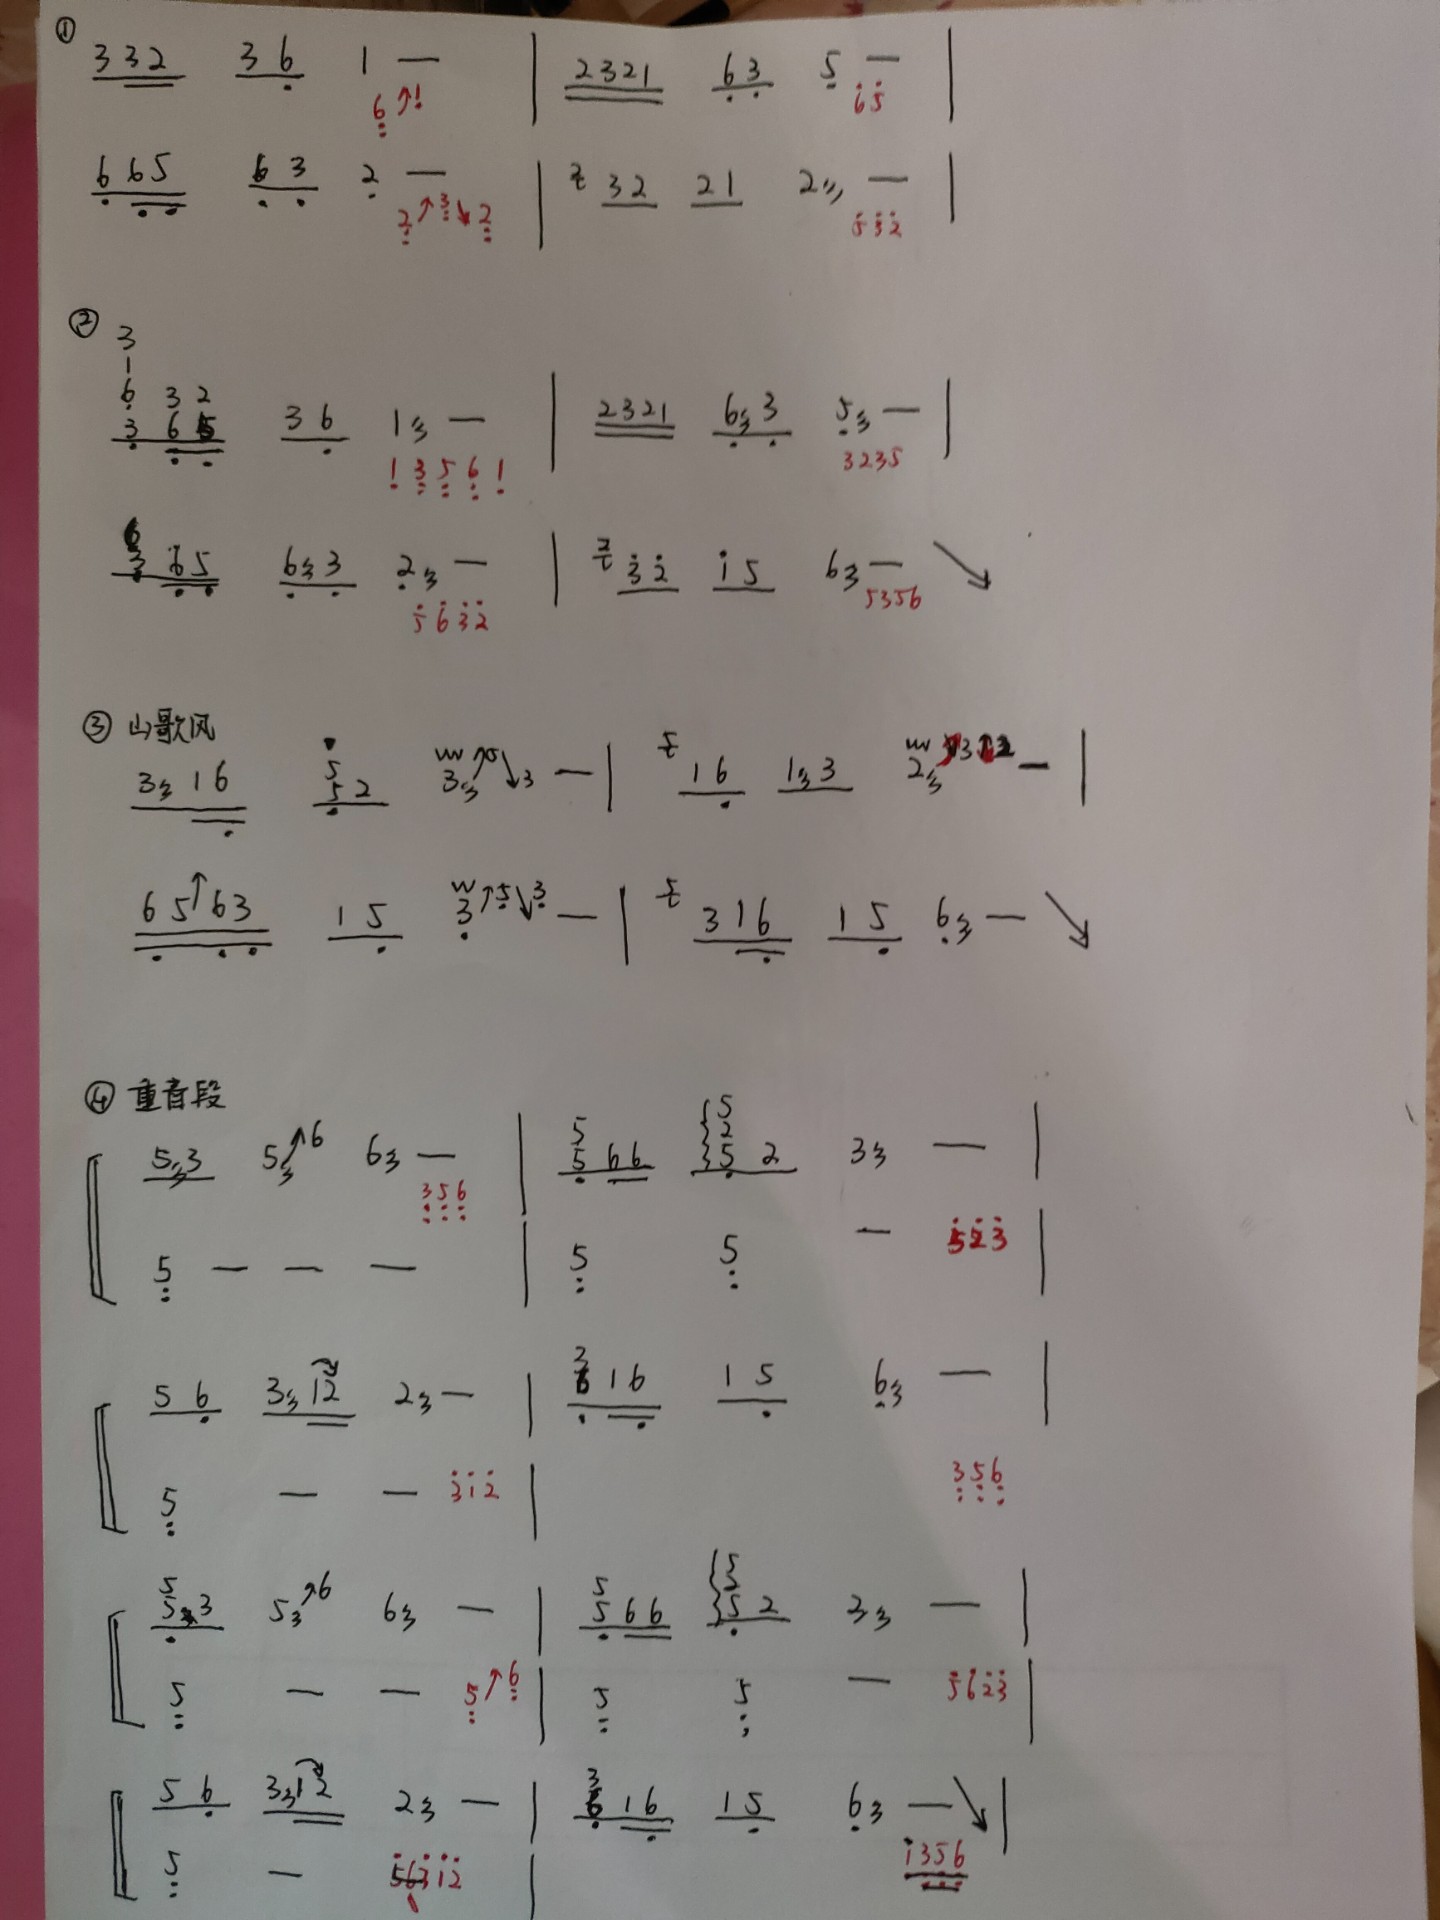 ①
332 36 1 — | 2321 63 5 — |
6↗1 65
665 63 2 — | 32 21 2 — |
2↗3↘2 532
②
3
1
6 32
3 65 36 1 — | 2321 63 5 — |
1 3 5 6 1 3235
65 63 2 — | 32 15 6 — ↘
5632 5356
③ 山歌风
5
3 16 5 2 3 ↘3 — | 16 13 2 — |
65↑63 15 3 ↗5↘3 — | 316 15 6 — ↘
④ 重音段
5 5
2
53 5↗6 6 — | 5 66 5 2 3 — |
356
5 — — — | 5 5 — 523 |
3
56 312 2 — | 16 15 6 — |
5 — — 312 | 356
5 5 5
5 3 5↗6 6 — | 5 66 5 2 3 — |
5 — — 5↗6 | 5 5 — 5623 |
3
56 312 2 — | 16 15 6 — ↘ |
5 — 12 | 1356